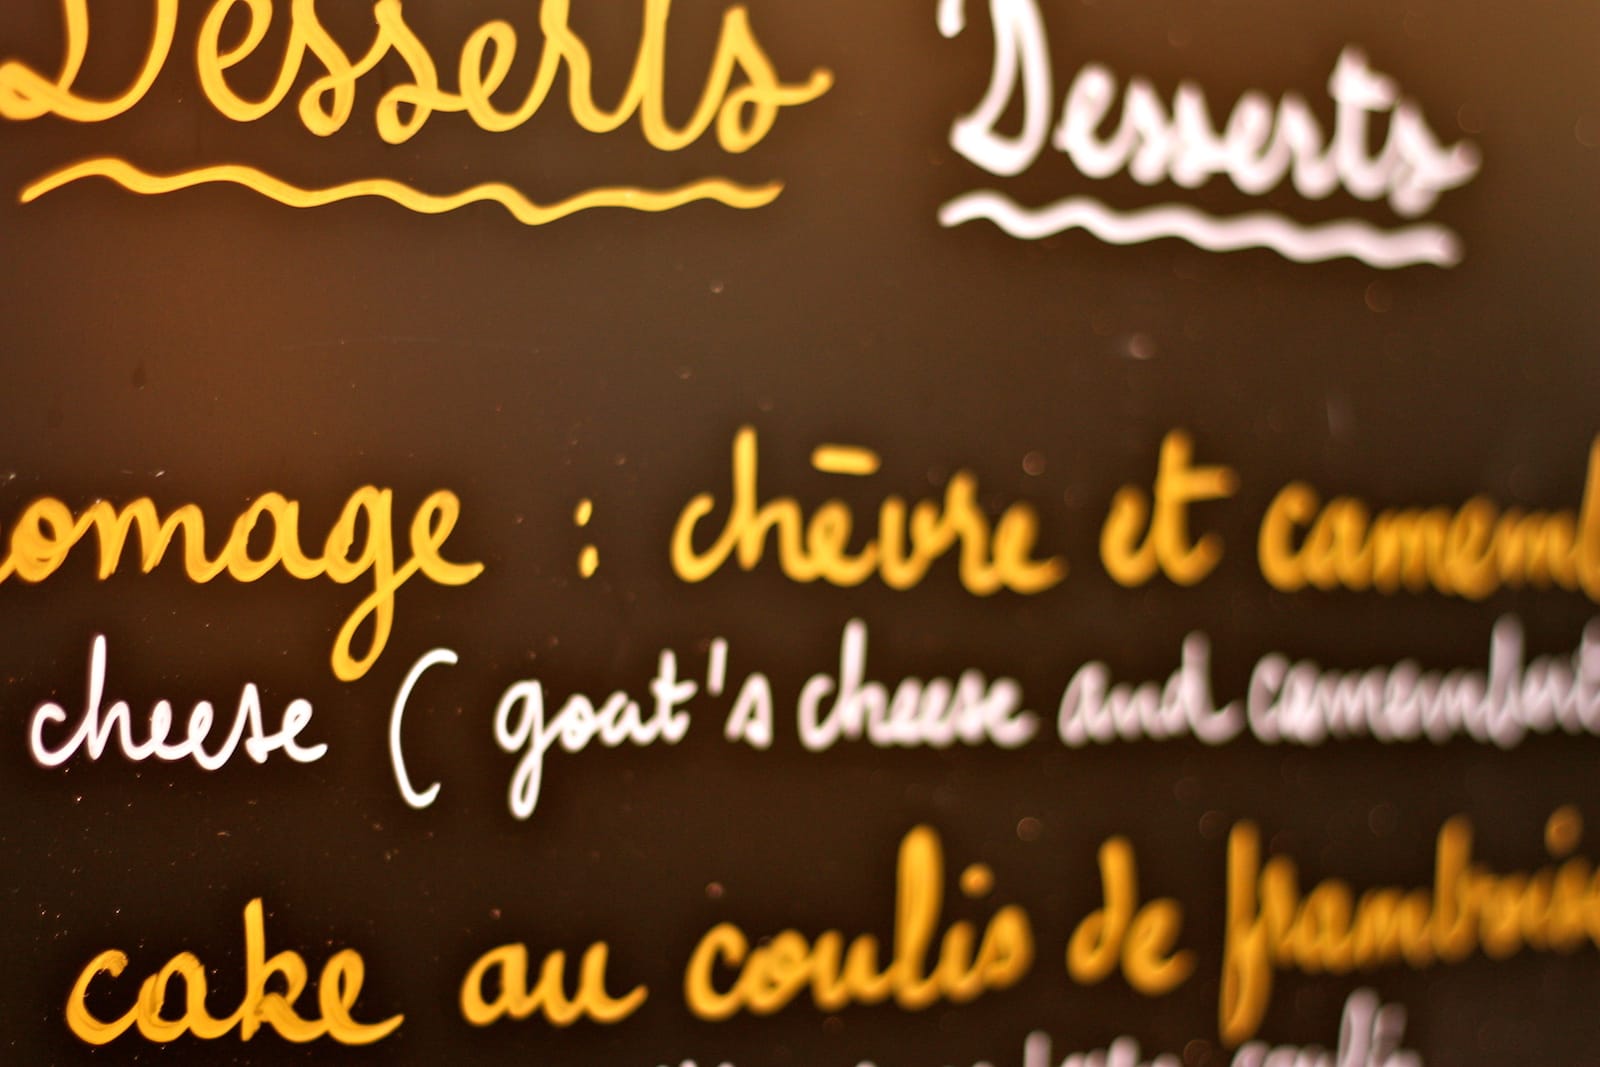 Desserts Desserts
omage : chèvre et camemb
cheese ( goat's cheese and camembert
cake au coulis de framboise